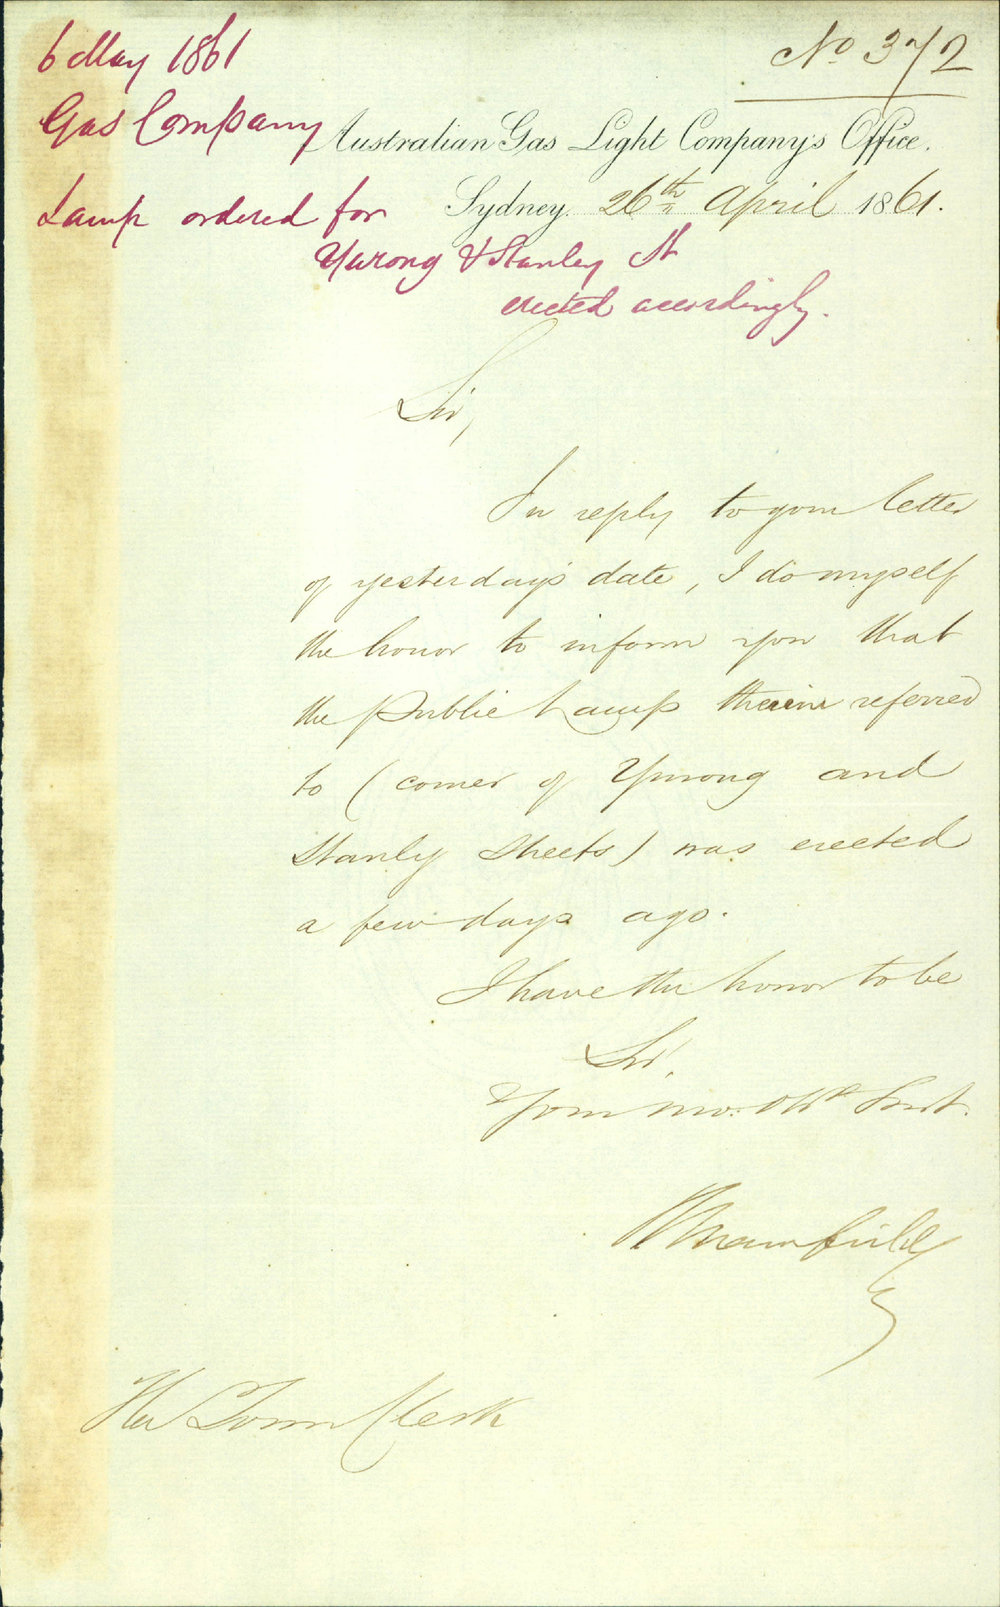 6 May 1861
No 372
Gas Company
Australian Gas Light Company's Office.
Lamp ordered for
Sydney. 26th April 1861.
Yurong & Stanley St
erected accordingly.
Sir,
In reply to your letter
of yesterday's date, I do myself
the honor to inform you that
the Public Lamp therein referred
to (corner of Yurong and
Stanly Streets) was erected
a few days ago.
I have the honor to be
Sir,
Your mo: Obt Servt.
Mansfield
The Town Clerk